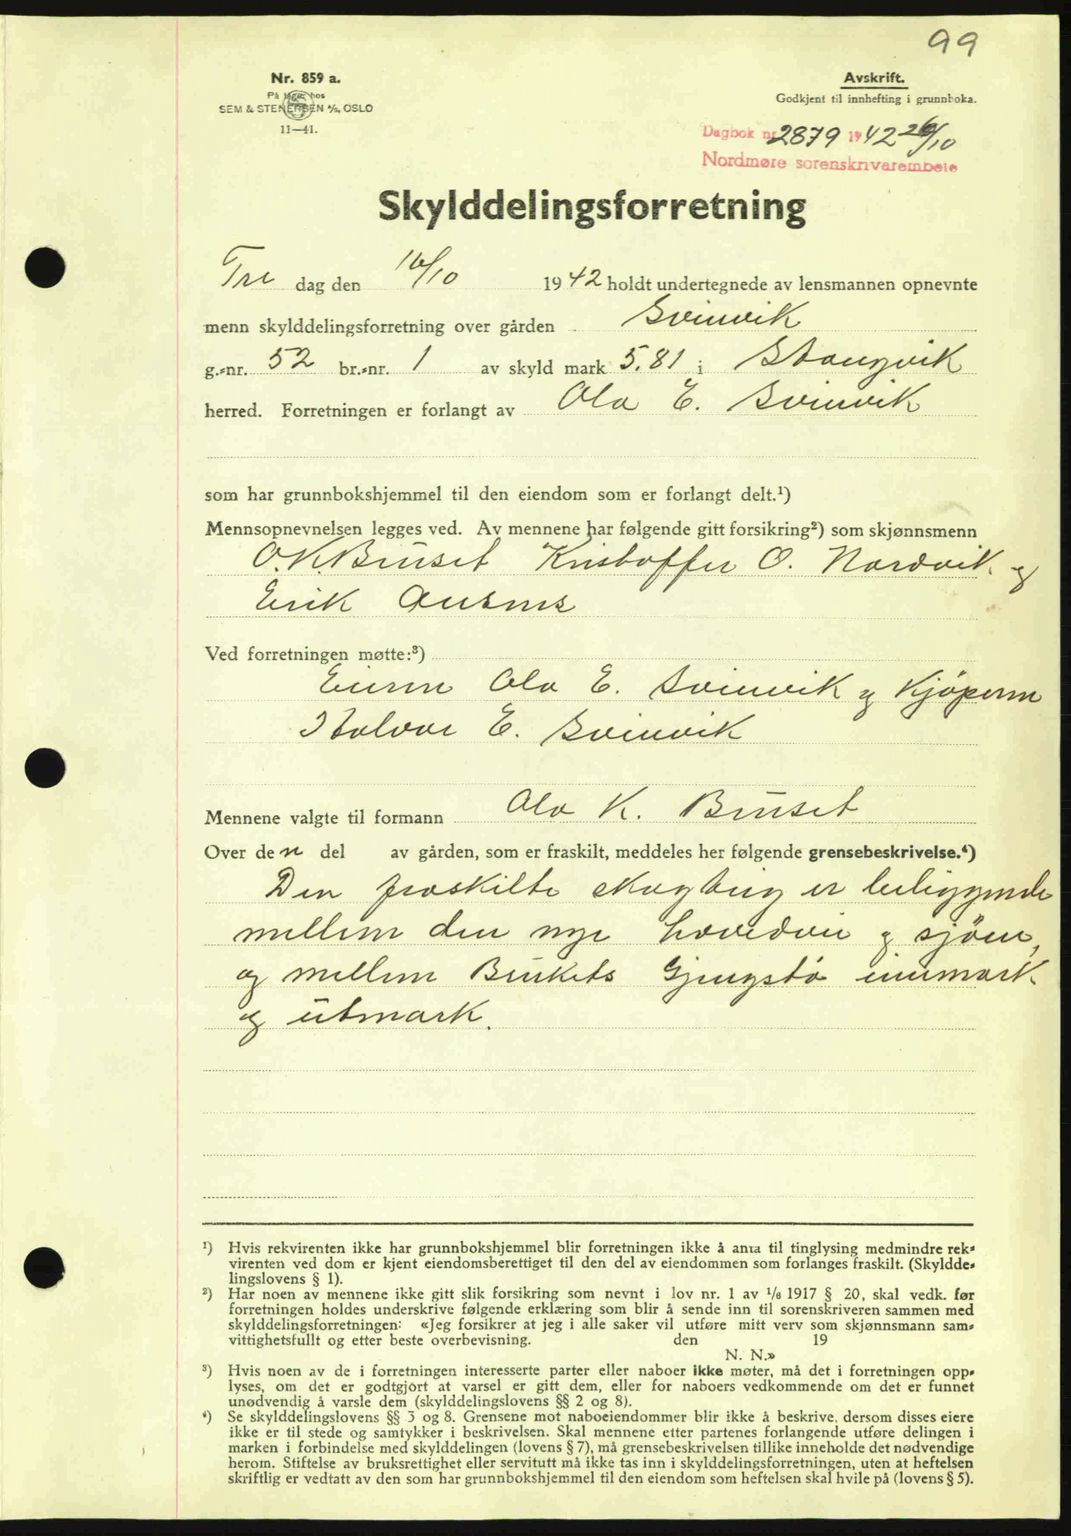 99
Nr. 859 a.
På lager hos
SEM & STENERSEN A/S, OSLO
11—41.
Avskrift.
Godkjent til innhefting i grunnboka.
Dagbok nr. 2879 1942 26/10
Nordmøre sorenskrivarembete
Skylddelingsforretning
Tre dag den 16/10 1942 holdt undertegnede av lensmannen opnevnte
menn skylddelingsforretning over gården Svinvik
g.-nr. 52 br.-nr. 1 av skyld mark 5.81 i Stangvik
herred. Forretningen er forlangt av Ola E. Svinvik
som har grunnbokshjemmel til den eiendom som er forlangt delt.¹)
Mennsopnevnelsen legges ved. Av mennene har følgende gitt forsikring²) som skjønnsmenn
O.K. Bruset Kristoffer O. Nordvik og
Erik
Ved forretningen møtte:³)
Eieren Ola E. Svinvik og Kjöperen
Halvor E. Svinvik
Mennene valgte til formann Ola K. Bruset
Over den del av gården, som er fraskilt, meddeles her følgende grensebeskrivelse.⁴)
Den fraskilte skogteig er beliggende
mellem den nye hovedvei og sjöen,
og mellem Brukets innmark
og utmark.
¹) Hvis rekvirenten ikke har grunnbokshjemmel blir forretningen ikke å anta til tinglysing medmindre rek-
virenten ved dom er kjent eiendomsberettiget til den del av eiendommen som forlanges fraskilt. (Skyldde-
lingslovens § 1).
²) Har noen av mennene ikke gitt slik forsikring som nevnt i lov nr. 1 av 1/6 1917 § 20, skal vedk. før
forretningen holdes underskrive følgende erklæring som blir å sende inn til sorenskriveren sammen med
skylddelingsforretningen: «Jeg forsikrer at jeg i alle saker vil utføre mitt verv som skjønnsmann sam-
vittighetsfullt og etter beste overbevisning. den 19
N. N.»
³) Hvis noen av de i forretningen interesserte parter eller naboer ikke møter, må det i forretningen opp-
lyses, om det er godtgjort at varsel er gitt dem, eller for naboers vedkommende om det er funnet
unødvendig å varsle dem (skylddelingslovens §§ 2 og 8).
⁴) Se skylddelingslovens §§ 3 og 8. Grensene mot naboeiendommer blir ikke å beskrive, dersom disses eiere
ikke er til stede og samtykker i beskrivelsen. Skal mennene etter partenes forlangende utføre delingen i
marken i forbindelse med skylddelingen (lovens § 7), må grensebeskrivelsen tillike inneholde det nødvendige
herom. Stiftelse av bruksrettighet eller servitutt må ikke tas inn i skylddelingsforretningen, uten at heftelsen
skriftlig er vedtatt av den som har grunnbokshjemmel til den eiendom som heftelsen skal hvile på (lovens § 5).